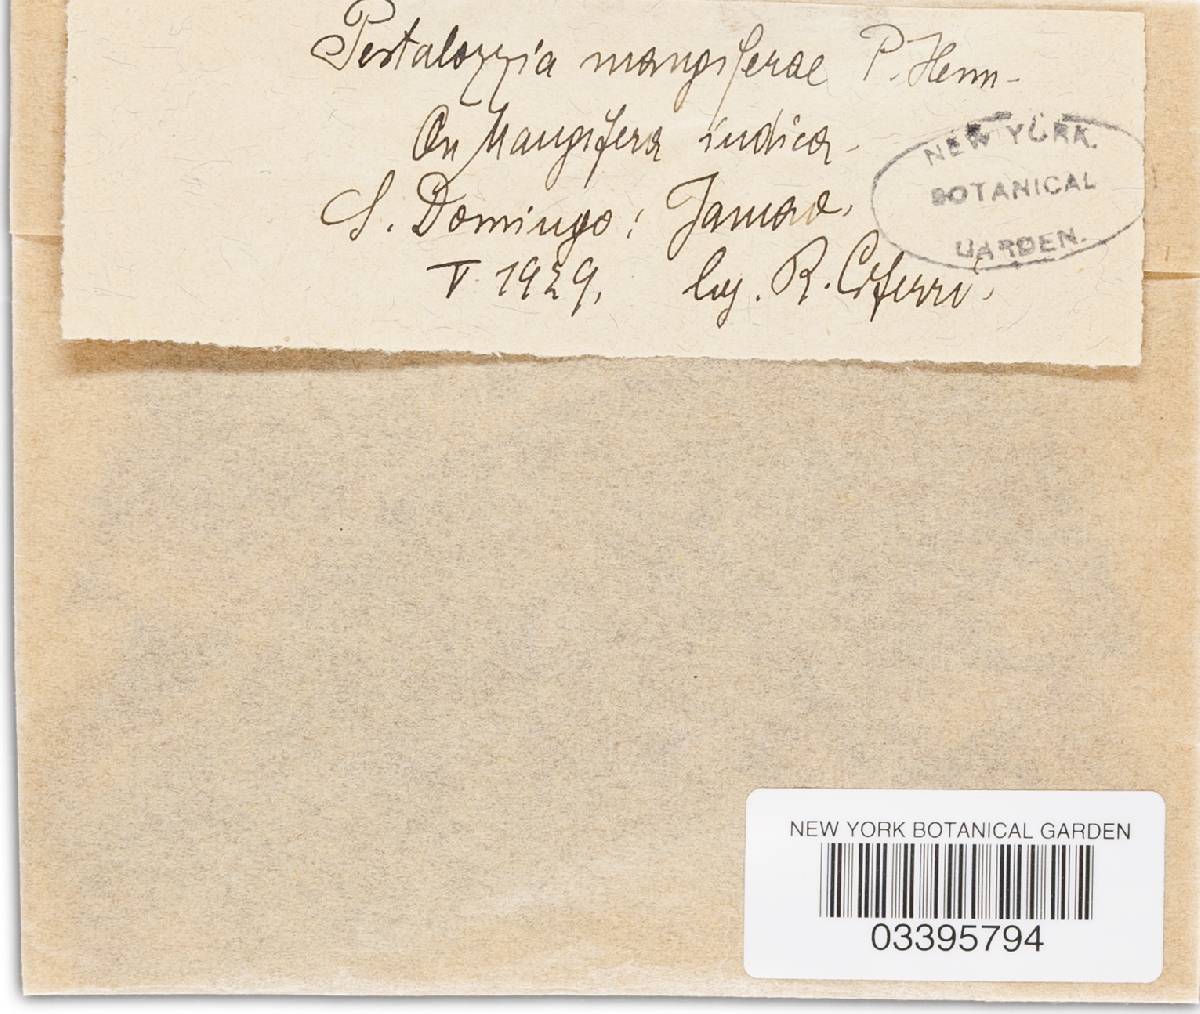 Pestalozzia mangiferae P. Henn-
On Mangifera indica.
S. Domingo:
V. 1929. leg. R. Ciferri.
NEW YORK
BOTANICAL
GARDEN.
NEW YORK BOTANICAL GARDEN
03395794